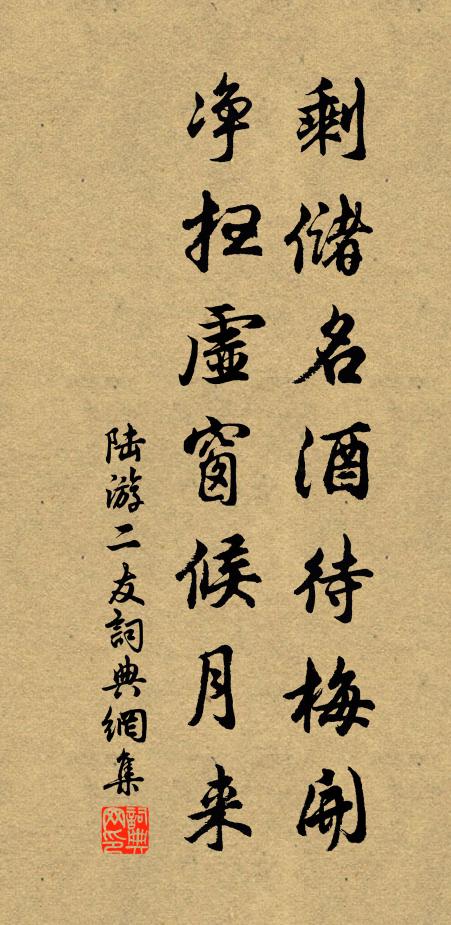 剩储名酒待梅开
净扫虚窗候月来
陆游二友詞典網集
詞典網印